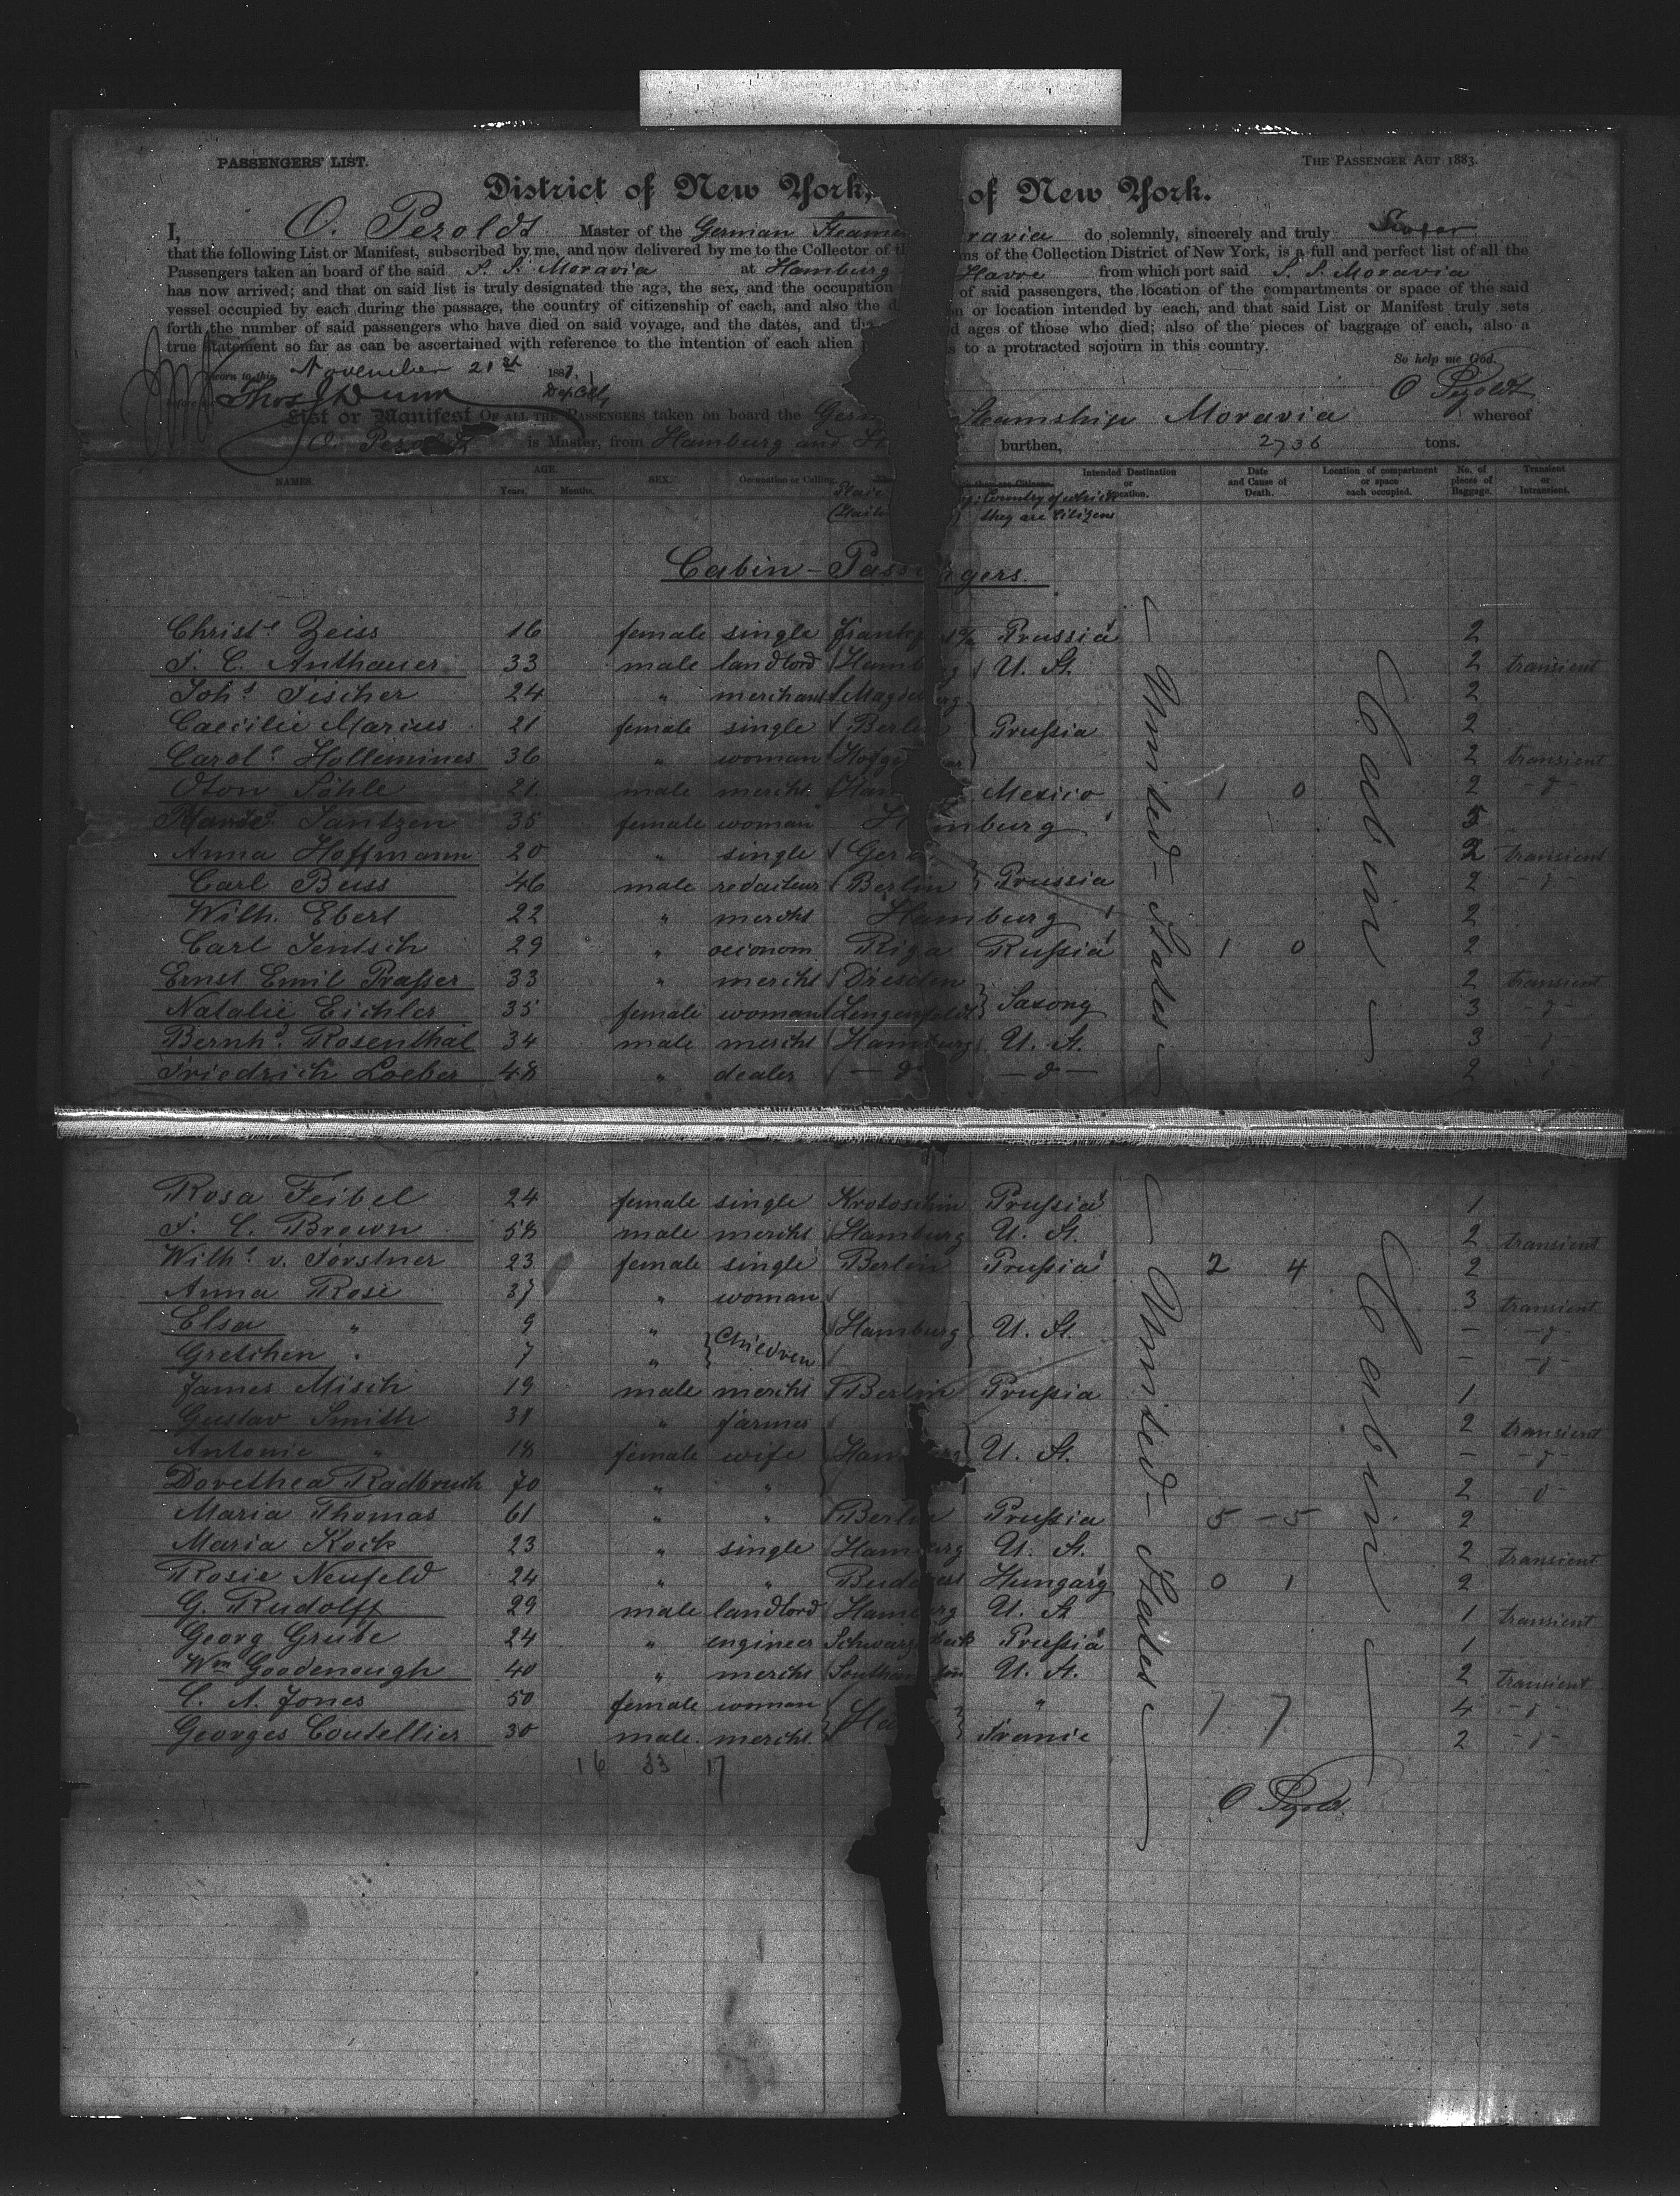 PASSENGERS' LIST. THE PASSENGER ACT 1883.
District of New York, of New York.
I, O. Pezoldt Master of the German Steame ravia do solemnly, sincerely and truly Swear
that the following List or Manifest, subscribed by me, and now delivered by me to the Collector of th ms of the Collection District of New York, is a full and perfect list of all the
Passengers taken on board of the said S. S. Moravia at Hamburg Havre from which port said S. S. Moravia
has now arrived; and that on said list is truly designated the age, the sex, and the occupation of said passengers, the location of the compartments or space of the said
vessel occupied by each during the passage, the country of citizenship of each, and also the d n or location intended by each, and that said List or Manifest truly sets
forth the number of said passengers who have died on said voyage, and the dates, and the d ages of those who died; also of the pieces of baggage of each, also a
true statement so far as can be ascertained with reference to the intention of each alien p s to a protracted sojourn in this country.
So help me God.
Sworn to this November 21st 188
before me Thos J Dunn Dep Col O Pezoldt
List or Manifest OF ALL THE PASSENGERS taken on board the Germ Steamship Moravia whereof
O. Pezoldt is Master, from Hamburg and burthen, 2736 tons.
NAMES. AGE. Years. Months. SEX. Occupation or Calling. they are Citizens. Intended Destination or Location. Date and Cause of Death. Location of compartment or space each occupied. No. of pieces of Baggage. Transient or Intransient.
Country of which they are Citizens
Cabin-Pass ngers.
Christe Zeiss 16 female single Frankf Prussia 2
F. C. Anthauer 33 male landlord Hamb g U. St. 2 transient
Johs Fischer 24 " merchant Magde rg 2
Caecilie Marius 21 female single Berlin Prussia 2
Carole Hollemines 36 " woman Hofge ar 2 transient
Oton Söhle 21 male mercht Ham Mexico 1 0 2 -d-
Jantzen 35 female woman H mburg 5
Anna Hoffmann 20 " single Gera 2 transient
Carl Beiss 46 male redacteur Berlin Prussia 2 -d-
Wilh. Ebert 22 " mercht Hamburg 2
Carl Jentsch 29 " oeconom Riga Russia 1 0 2
Ernst Emil Prasser 33 " mercht Dresden 2 transient
Natalie Eichler 35 female woman Lengenfeldt Saxony 3 -d-
Bernhd Rosenthal 34 male mercht Hamburg U. St. 3 d
Friedrich Loeber 48 " dealer -d- -d- 2 -d-
United-States
Cabin
Rosa Feibel 24 female single Krotoschin Prussia 1
F. C. Brown 58 male mercht Hamburg U. St. 2 transient
Wilhe v. Forstner 23 female single Berlin Prussia 2 4 2
Anna Rose 37 " woman 3 transient
Elsa " 9 " Children Hamburg U. St. - -d-
Gretchen " 7 " - -d-
James Misch 19 male mercht Berlin Prussia 1
Gustav Smith 31 " farmer 2 transient
Antonie " 18 female wife Ham rg U. St. - -d-
Dorethea Radbruch 70 " " 2 -d-
Maria Thomas 61 " " Berlin Prussia 5 - 5 2
Maria Kock 23 " single Ham urg U. St. 2 transient
Rosie Neufeld 24 " " Budapest Hungary 0 1 2
G. Rudolff 29 male landlord Hamburg U. St 1 transient
Georg Grube 24 " engineer Schwarz beck Prussia 1
Wm Goodenough 40 " mercht Southam ton U. St. 2 transient
C. A. Jones 50 female woman Ha " 7 7 4 -d-
Georges Coutellier 30 male mercht. France 2 -d-
United-States
Cabin
16 33 17
O Pezoldt.